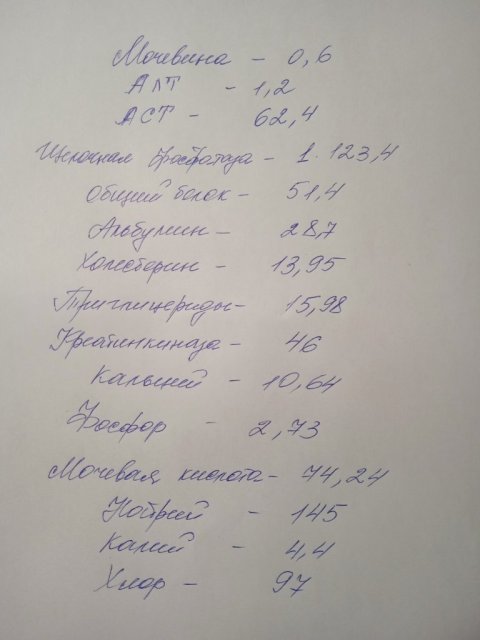 Мочевина - 0,6
АЛТ - 1,2
АСТ - 62,4
Щелочная фосфотаза - 1.123,4
Общий белок - 51,4
Альбумин - 28,7
Холестерин - 13,95
Триглицериды - 15,98
Креатинкиназа - 46
Кальций - 10,64
Фосфор - 2,73
Мочевая кислота - 74,24
Натрий - 145
Калий - 4,4
Хлор - 97